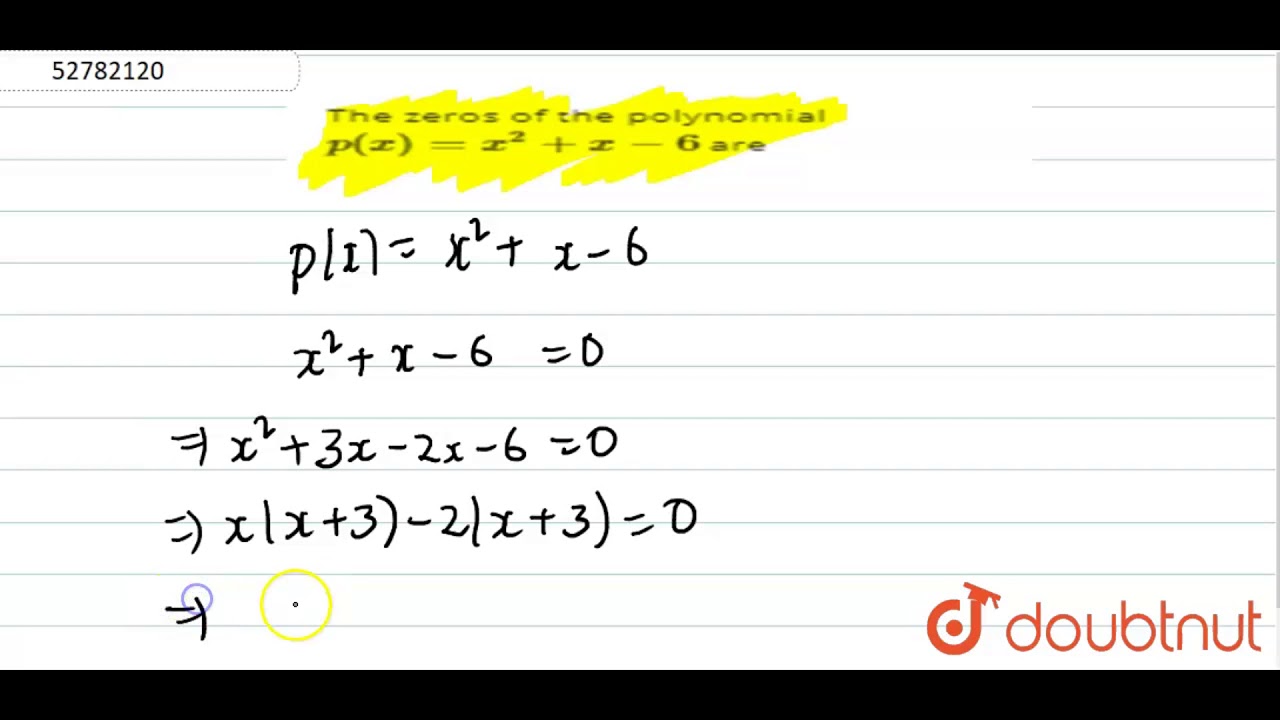 52782120
The zeros of the polynomial
p(x) = x² + x − 6 are
p(x) = x² + x - 6
x² + x - 6 = 0
⇒ x² + 3x - 2x - 6 = 0
⇒ x(x+3) - 2(x+3) = 0
⇒
doubtnut